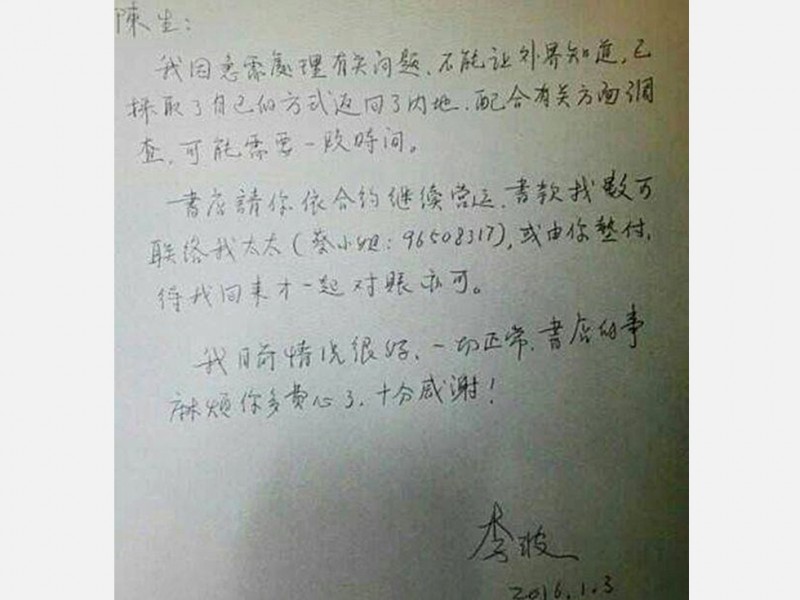 陳生：
我因急需處理有关问题，不能让外界知道，已
採取了自己的方式返回了内地，配合有关方面调
查，可能需要一段時间。
書店請你依合約继续营运，書款找數可
联络我太太（蔡小姐：96508317），或由你墊付，
待我回来才一起对賬亦可。
我目前情况很好，一切正常，書店的事
麻煩你多費心了，十分感谢！
李波
2016.1.3